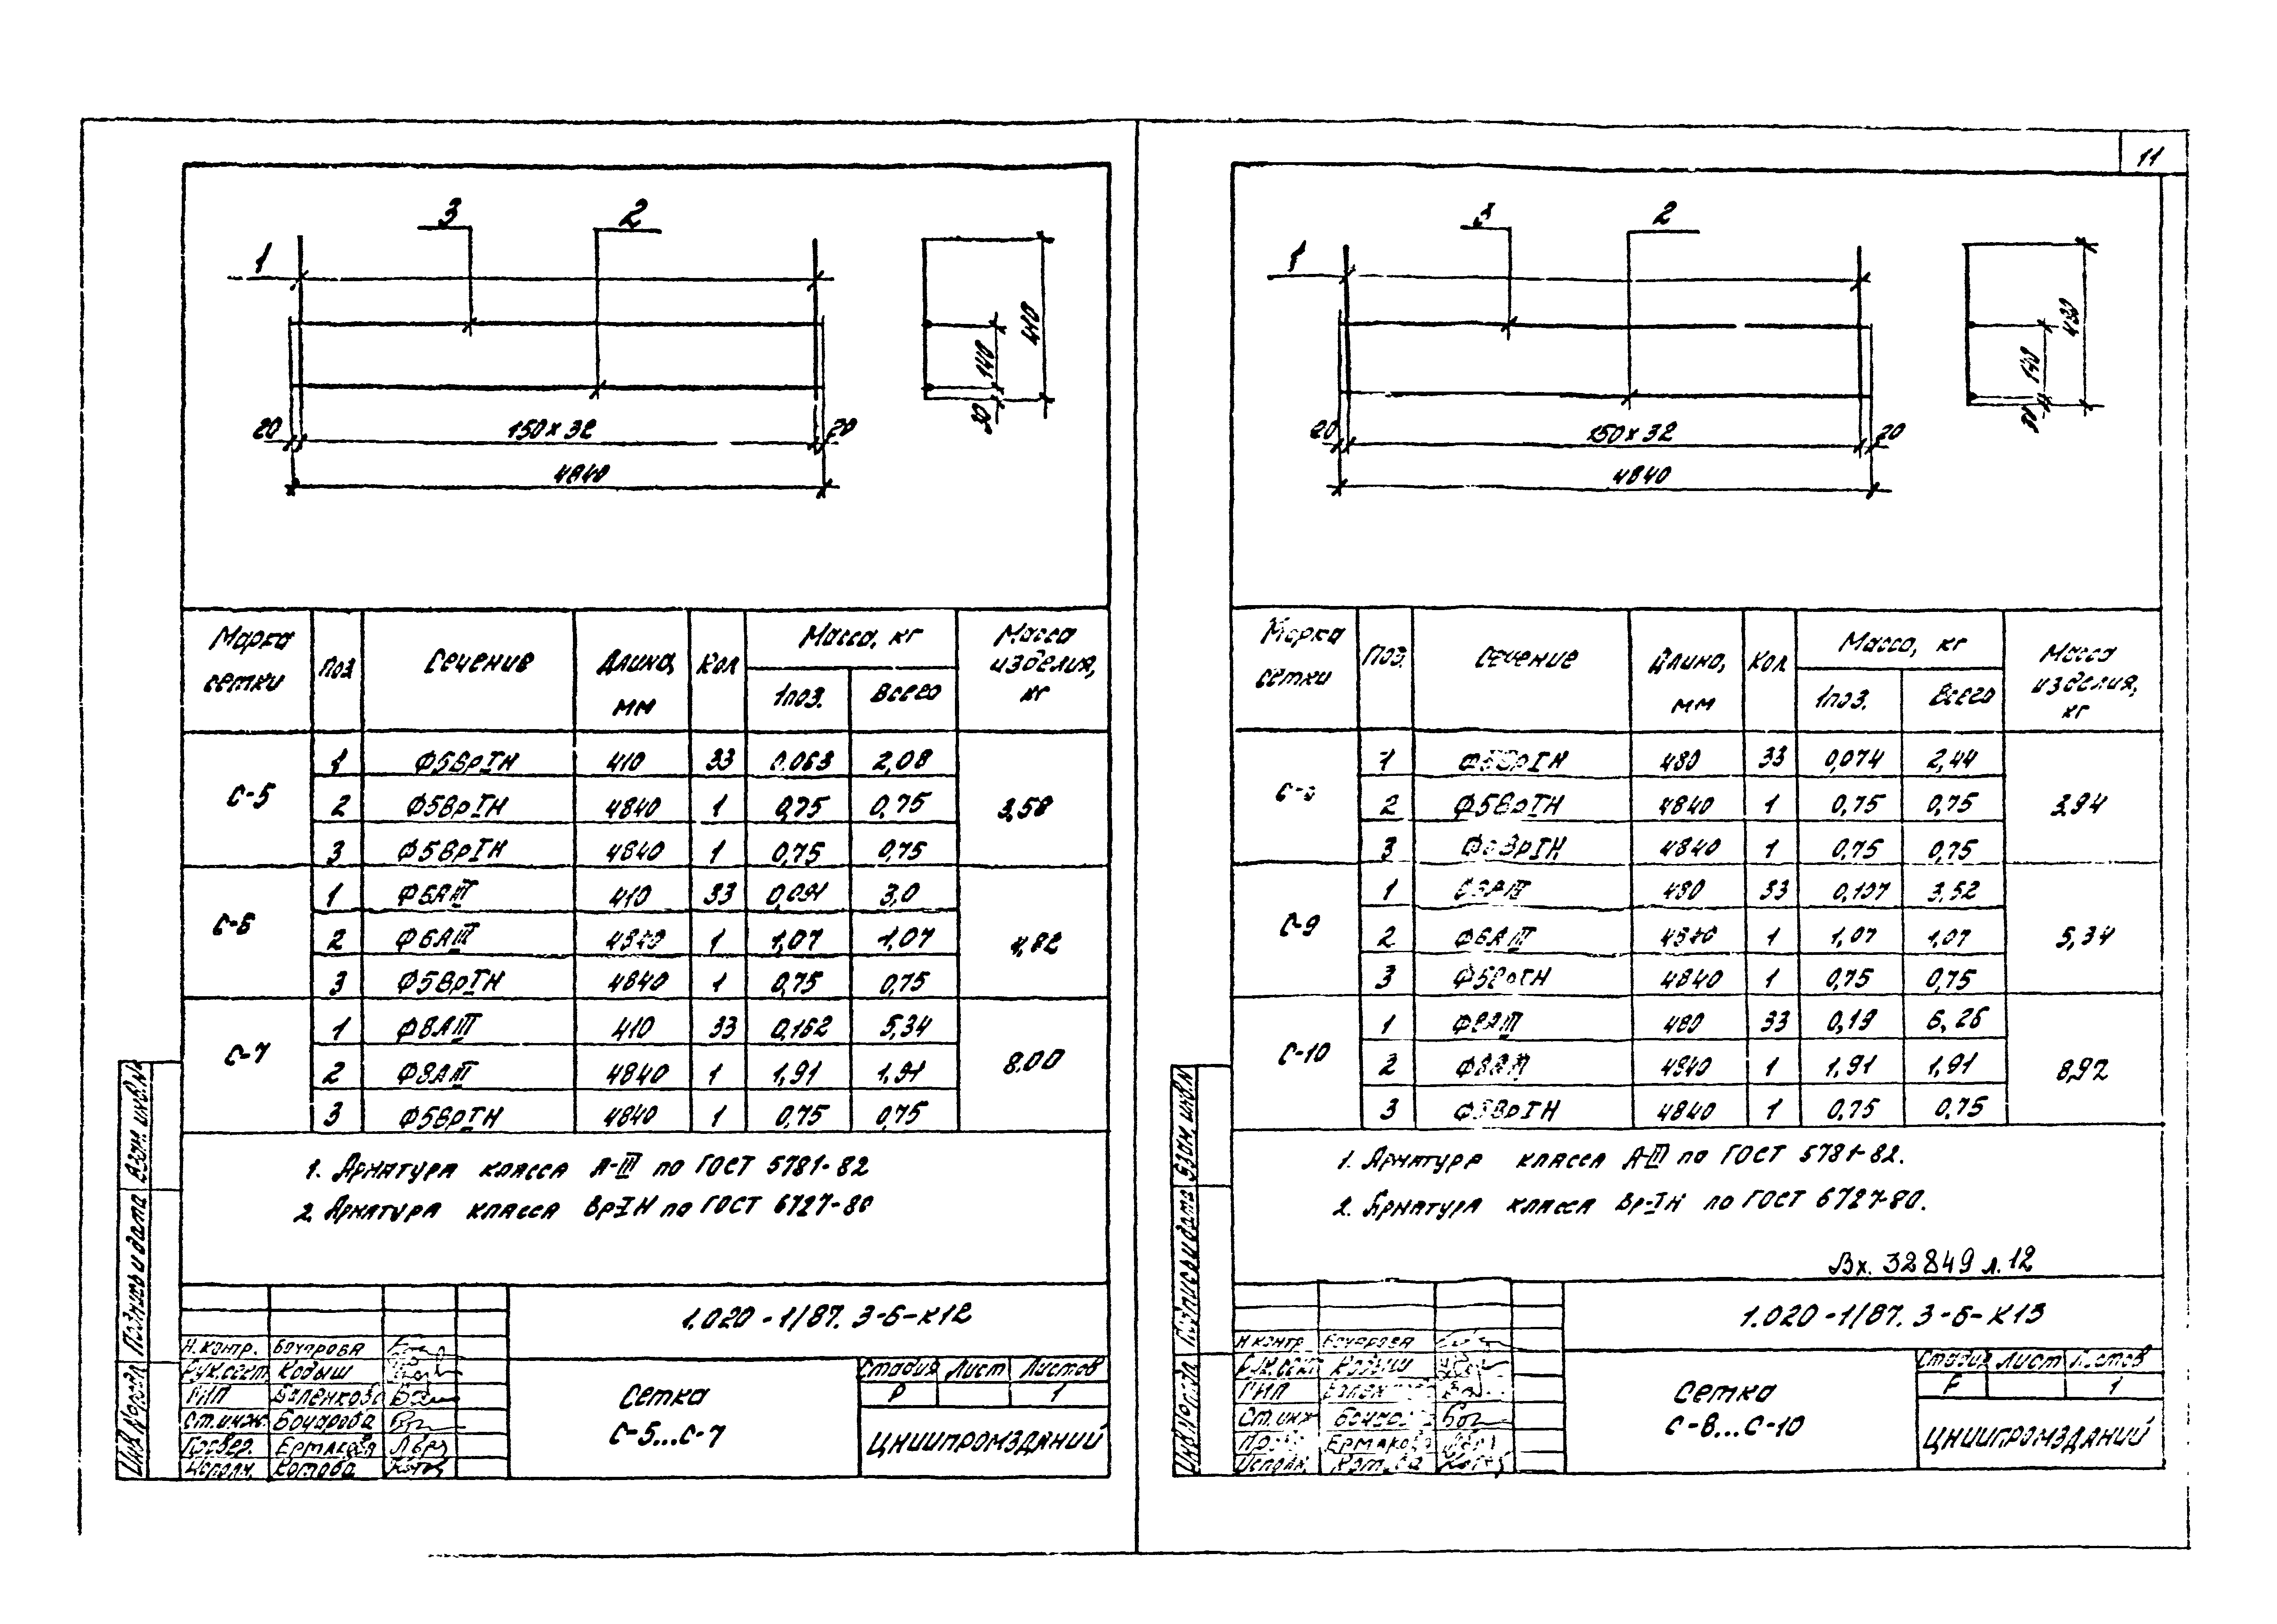 11
3 2
1
410
140
30
20 150×32 20
4840
Марка сетки Поз Сечение Длина, мм Кол Масса, кг Масса изделия, кг
1поз. Всего
С-5
1 Ф5ВрIН 410 33 0,063 2,08
2 Ф5ВрIН 4840 1 0,75 0,75 3,58
3 Ф5ВрIН 4840 1 0,75 0,75
С-6
1 Ф6АIII 410 33 0,091 3,0
2 Ф6АIII 4840 1 1,07 1,07 4,82
3 Ф5ВрIН 4840 1 0,75 0,75
С-7
1 Ф8АIII 410 33 0,162 5,34
2 Ф8АIII 4840 1 1,91 1,91 8.00
3 Ф5ВрIН 4840 1 0,75 0,75
1. Арматура класса А-III по ГОСТ 5781-82
2. Арматура класса ВрIН по ГОСТ 6727-80
Инв.№подл Подпись и дата Взам.инв.№
1.020-1/87. 3-6-К12
Н.контр. Бочарова
Рук.сект Кодыш
ГИП
Ст.инж. Бочарова
Провер. Ермакова
Исполн. Котова
Сетка
С-5...С-7
Стадия Лист Листов
Р 1
ЦНИИПРОМЗДАНИЙ
3 2
1
480
140
20 150×32 20
4840
Марка сетки Поз. Сечение Длина, мм Кол Масса, кг Масса изделия, кг
1поз. Всего
1 Ф5ВрIН 480 33 0,074 2,44
2 Ф5ВрIН 4840 1 0,75 0,75 3,94
3 Ф5ВрIН 4840 1 0,75 0,75
С-9
1 480 33 0,107 3,52
2 Ф6АIII 4840 1 1,07 1,07 5,34
3 Ф5ВрIН 4840 1 0,75 0,75
С-10
1 Ф8АIII 480 33 0,19 6,26
2 Ф8АIII 4840 1 1,91 1,91 8,92
3 Ф5ВрIН 4840 1 0,75 0,75
1. Арматура класса А-III по ГОСТ 5781-82.
2. Арматура класса Вр-IН по ГОСТ 6727-80.
Вх. 32849 л.12
Инв№подл Подпись и дата Взам.инв.№
1.020-1/87. 3-6-К13
Н.контр Бочарова
Рук.сект Кодыш
ГИП
Ст.инж
Ермакова
Исполн. Котова
Сетка
С-8...С-10
Стадия Лист Листов
Р 1
ЦНИИПРОМЗДАНИЙ